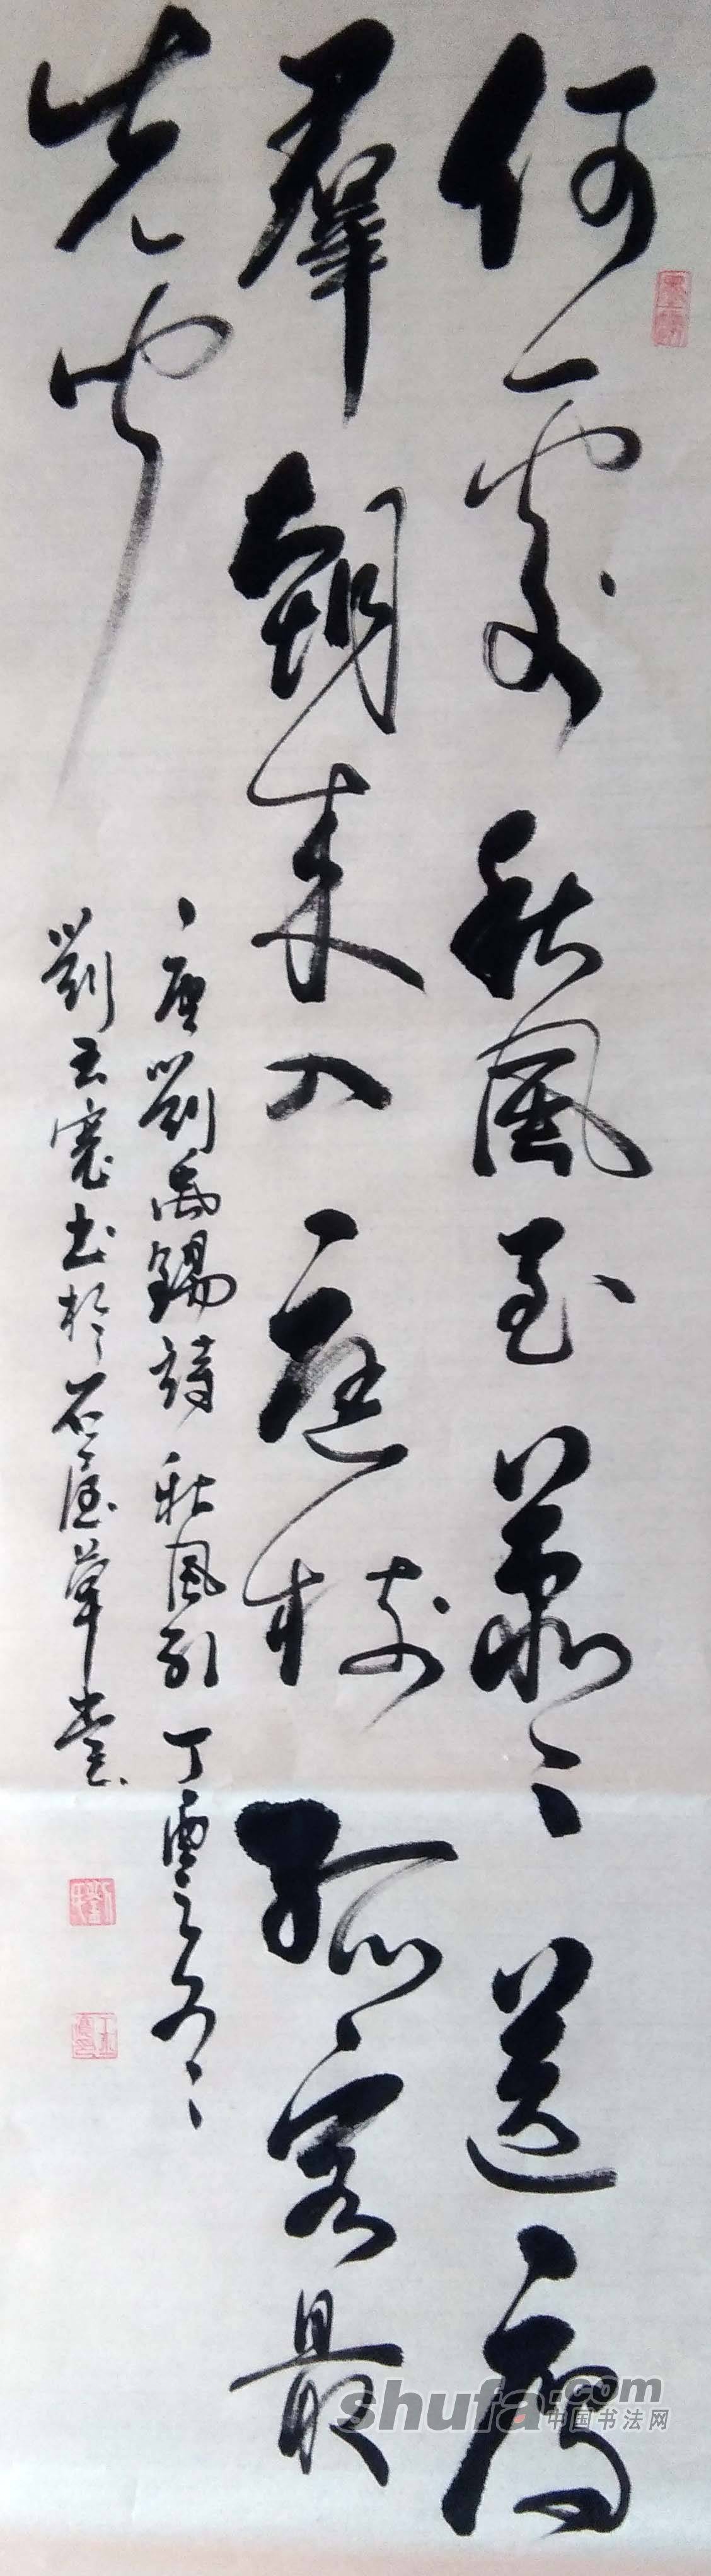 何處秋風至蕭〻送雁
羣朝來入庭樹孤客最
先聞
唐劉禹錫詩秋風引丁酉之冬
劉玉寬书於石屋草堂
shufa.com
中国书法网